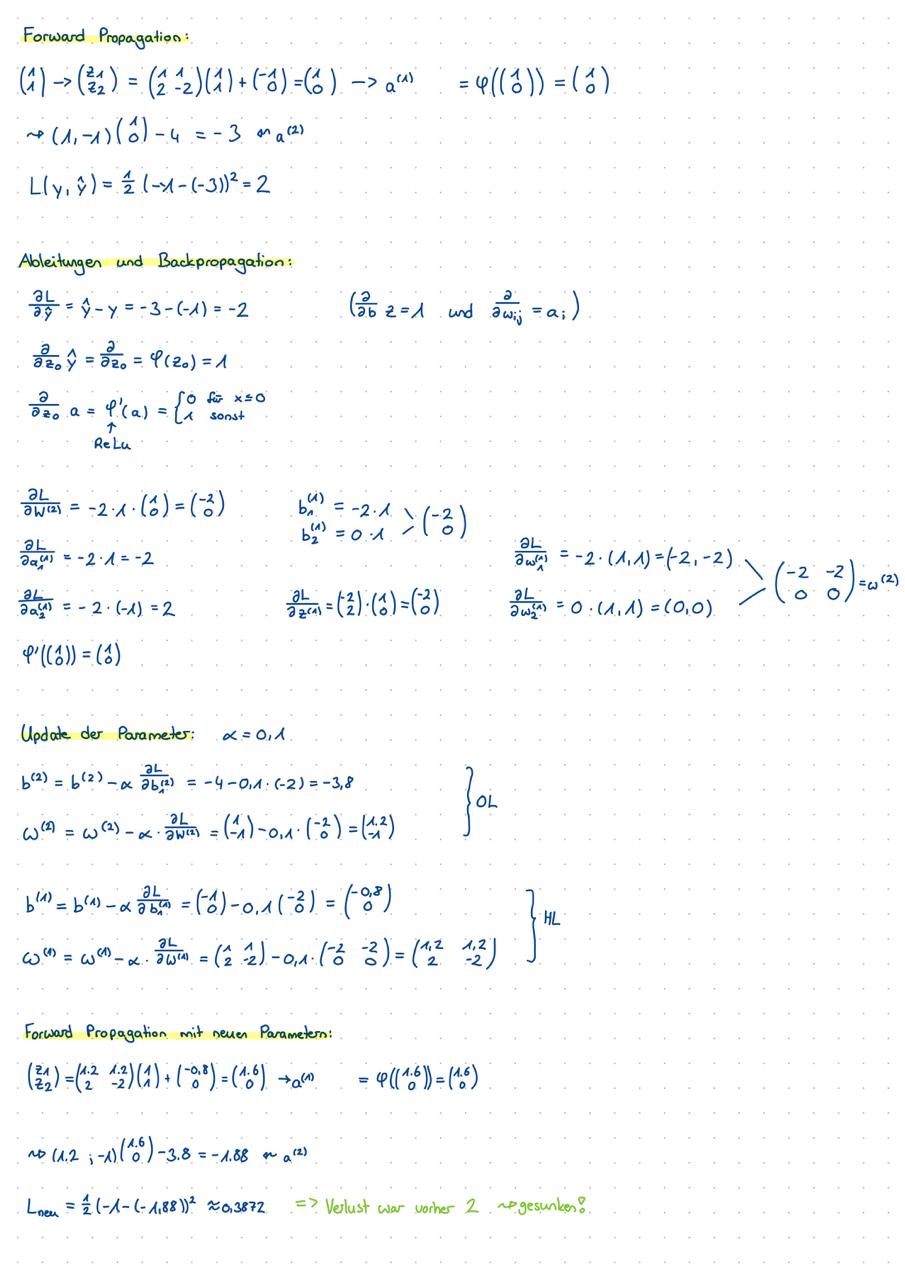 Forward Propagation:
(1 1) → (z1 z2) = (1 1 2 -2)(1 1) + (-1 0) = (1 0) → a^(1) = φ((1 0)) = (1 0)
⇝ (1,-1)(1 0) - 4 = -3 ↜ a^(2)
L(y, ŷ) = 1/2 (-1-(-3))² = 2
Ableitungen und Backpropagation:
∂L/∂ŷ = ŷ - y = -3-(-1) = -2 (∂/∂b z = 1 und ∂/∂w_ij = a_i)
∂/∂z₀ ŷ = ∂/∂z₀ = φ(z₀) = 1
∂/∂z₀ a = φ'(a) = {0 für x≤0
1 sonst
↑
ReLu
∂L/∂W^(2) = -2·1·(1 0) = (-2 0) b₁^(1) = -2·1
b₂^(1) = 0·1 > (-2 0)
∂L/∂a₁^(1) = -2·1 = -2 ∂L/∂w₁^(1) = -2·(1,1) = (-2,-2)
∂L/∂a₂^(1) = -2·(-1) = 2 ∂L/∂z^(1) = (-2 2)·(1 0) = (-2 0) ∂L/∂w₂^(1) = 0·(1,1) = (0,0) > (-2 -2 0 0) = ω^(2)
φ'((1 0)) = (1 0)
Update der Parameter: α = 0,1
b^(2) = b^(2) - α ∂L/∂b₁^(2) = -4 - 0,1·(-2) = -3,8
ω^(2) = ω^(2) - α · ∂L/∂W^(2) = (1 -1) - 0,1·(-2 0) = (1.2 -1) } OL
b^(1) = b^(1) - α ∂L/∂b^(1) = (-1 0) - 0,1 (-2 0) = (-0,8 0)
ω^(1) = ω^(1) - α · ∂L/∂W^(1) = (1 1 2 -2) - 0,1·(-2 -2 0 0) = (1,2 1,2 2 -2) } HL
Forward Propagation mit neuen Parametern:
(z1 z2) = (1.2 1.2 2 -2)(1 1) + (-0,8 0) = (1.6 0) → a^(1) = φ((1.6 0)) = (1.6 0)
⇝ (1.2 ; -1)(1.6 0) - 3.8 = -1.88 ↜ a^(2)
L_neu = 1/2 (-1-(-1,88))² ≈ 0,3872 => Verlust war vorher 2 ⇝ gesunken!